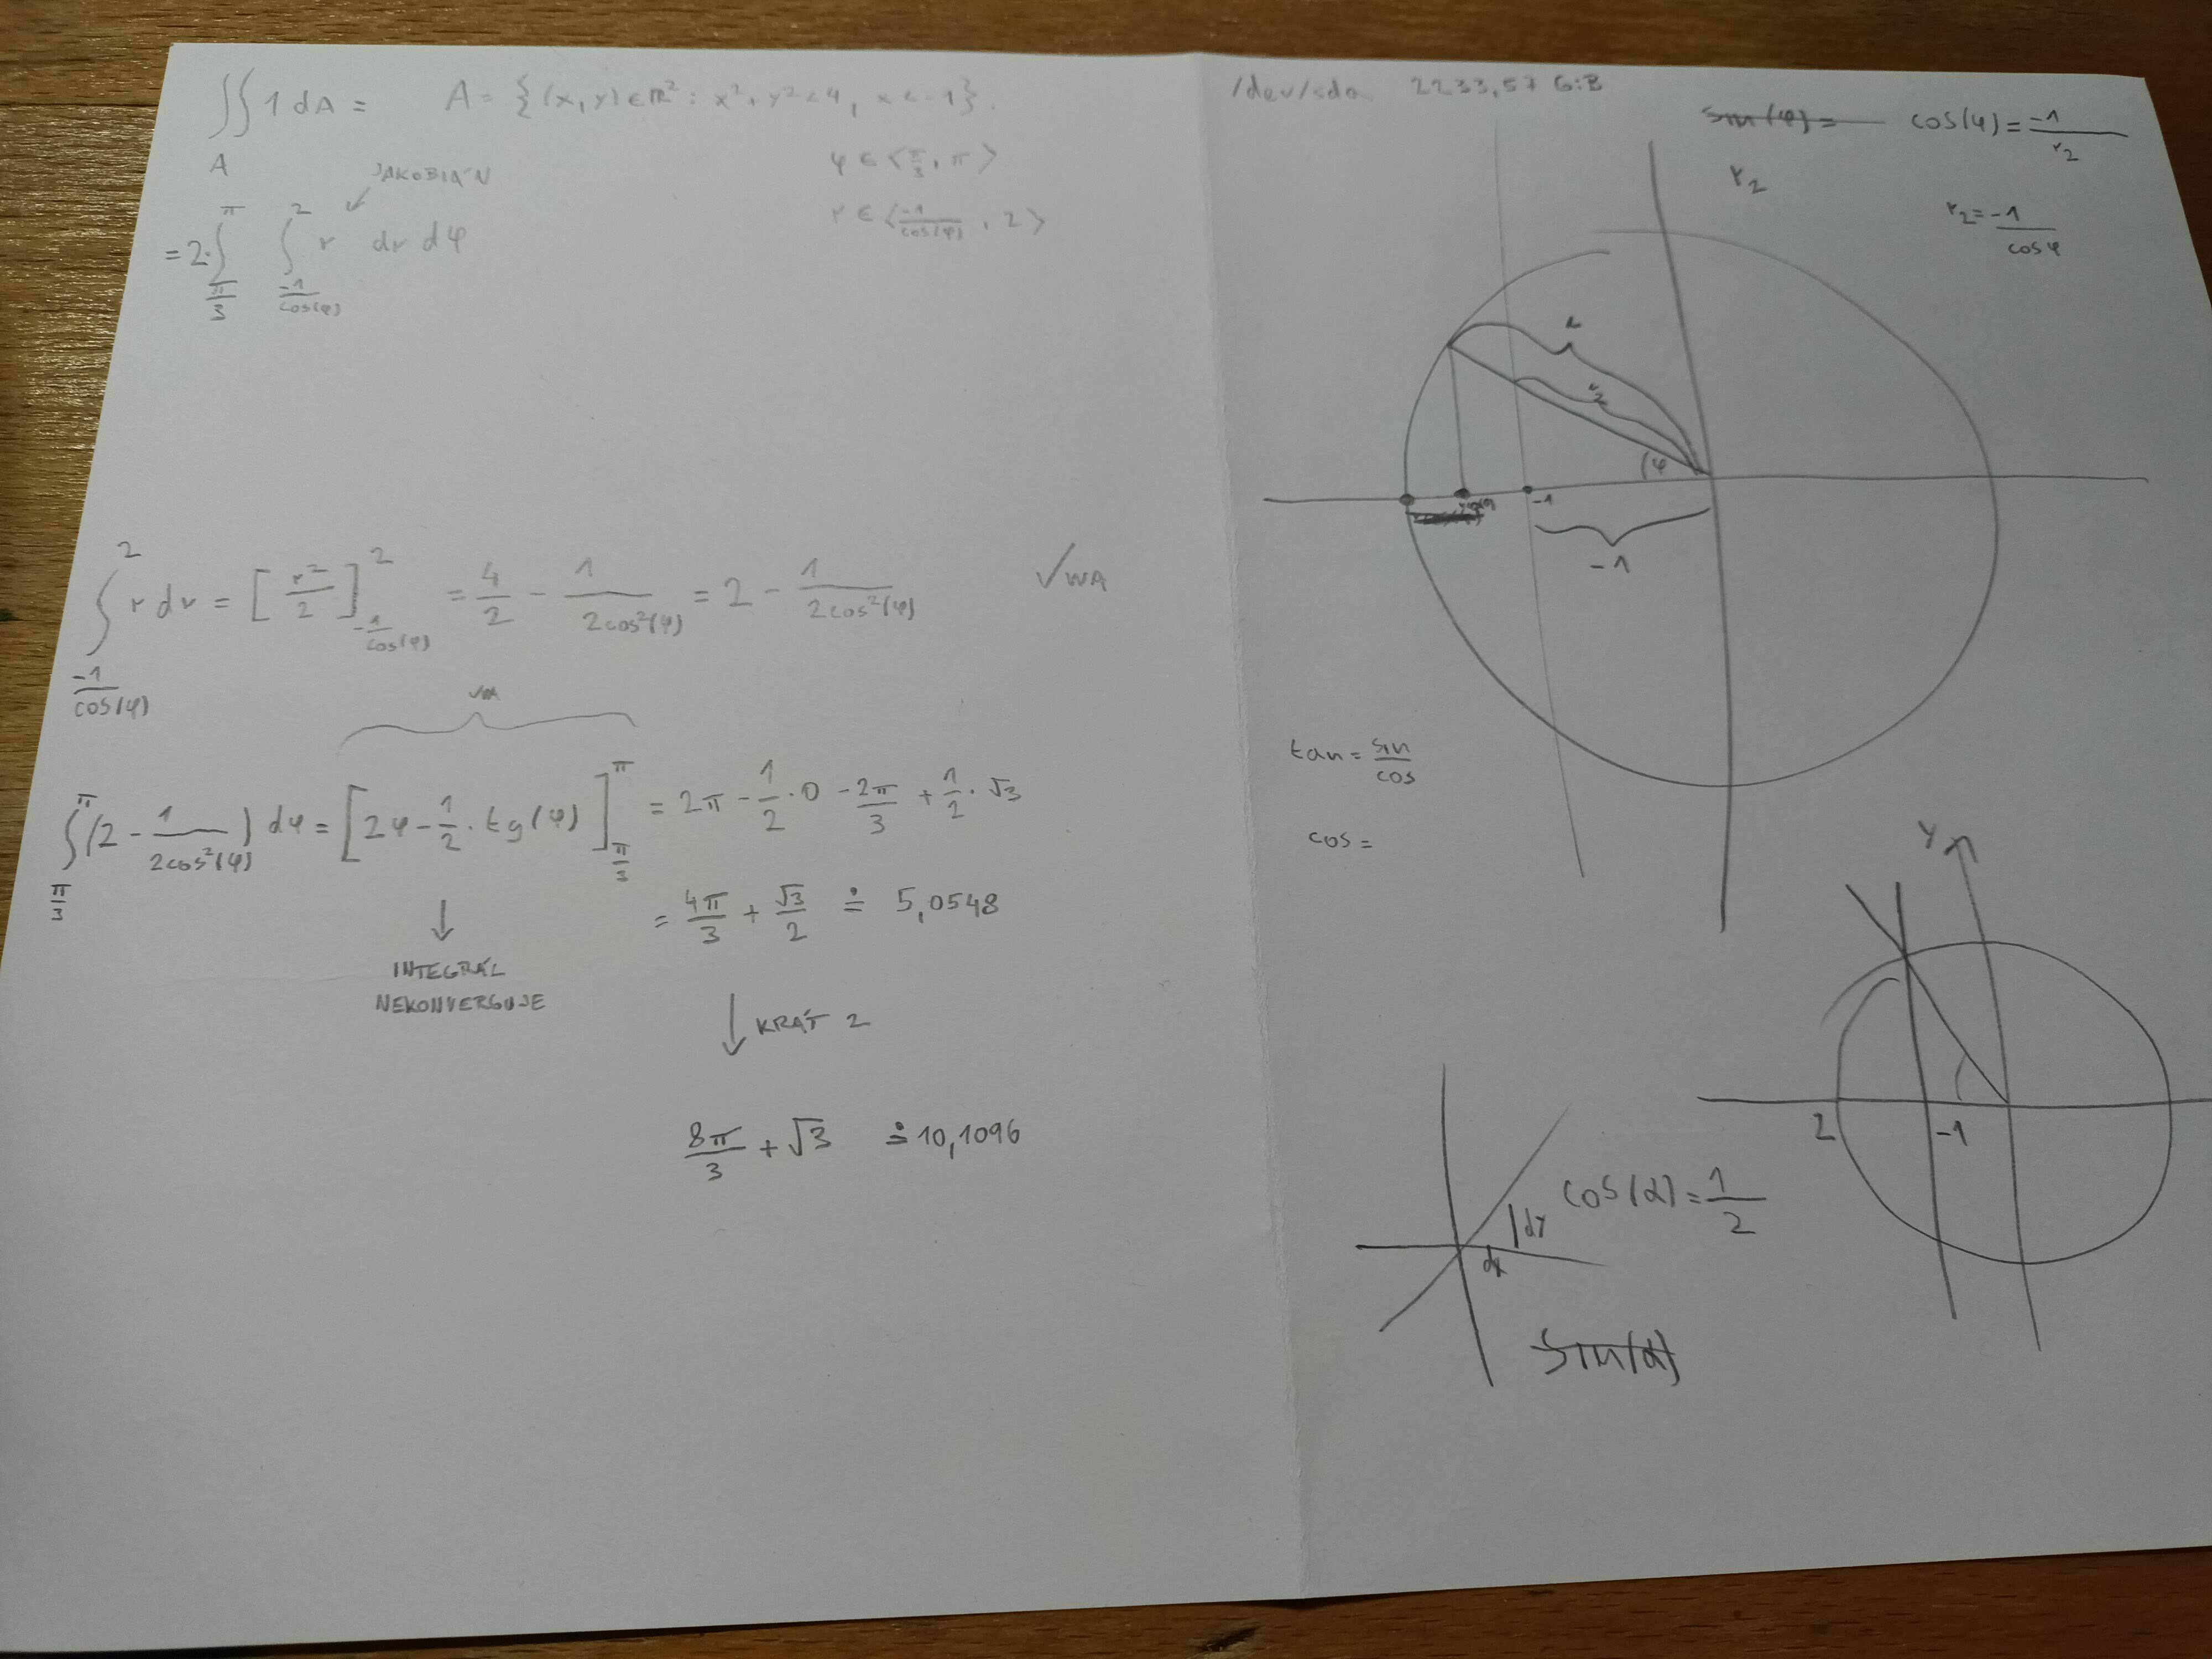 ∬ 1 dA = A = {(x, y) ∈ ℝ² : x² + y² < 4, x < -1}.
A
φ ∈ <π/3, π>
JAKOBIÁN
= 2·∫_{π/3}^{π} ∫_{-1/cos(φ)}^{2} r dr dφ
r ∈ <-1/cos(φ), 2>
∫_{-1/cos(φ)}^{2} r dr = [r²/2]_{-1/cos(φ)}^{2} = 4/2 - 1/(2cos²(φ)) = 2 - 1/(2cos²(φ)) √WA
∫_{π/3}^{π} (2 - 1/(2cos²(φ))) dφ = [2φ - 1/2 · tg(φ)]_{π/3}^{π} = 2π - 1/2 · 0 - 2π/3 + 1/2 · √3
= 4π/3 + √3/2 ≐ 5,0548
INTEGRÁL
NEKONVERGUJE
KRÁT 2
8π/3 + √3 ≐ 10,1096
/dev/sda 2233,57 GiB
sin(φ) = cos(φ) = -1/r₂
r₂
r₂ = -1/cos φ
2
r₂
φ
-1
-1
tan = sin/cos
cos =
Y
2
-1
dy
dx
cos(α) = 1/2
sin(α)